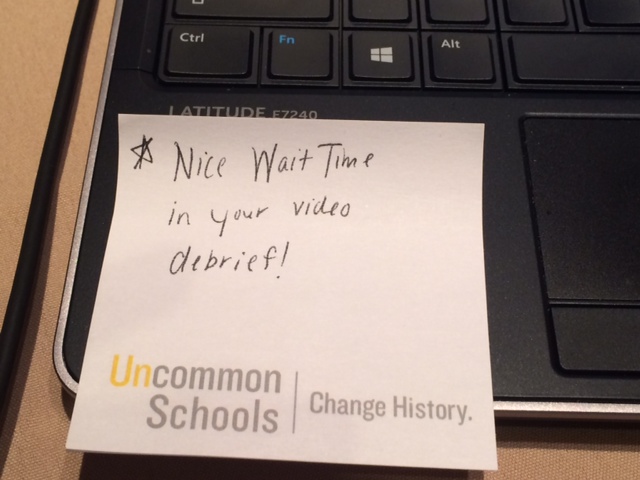 Ctrl
Fn
Alt
LATITUDE E7240
Nice Wait Time
in your video
debrief!
Uncommon
Schools
Change History.